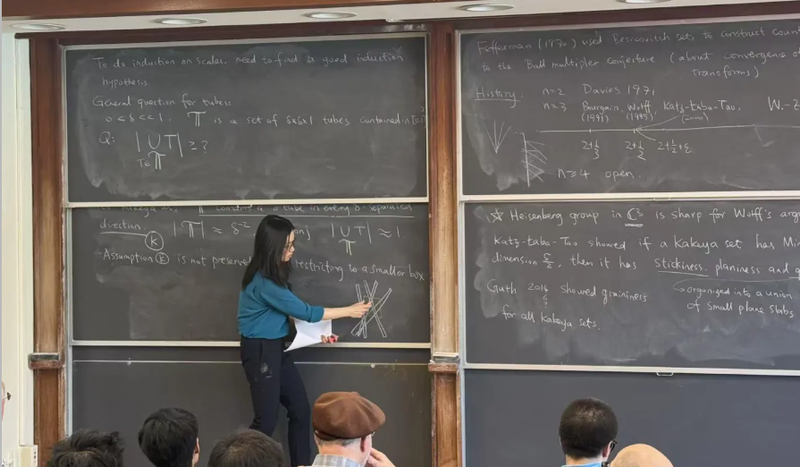 To do induction on scales, need to find a good induction
hypothesis.
General question for tubes:
0 < δ << 1. 𝕋 is a set of δxδx1 tubes contained in
Q: | ∪ T | ≥ ?
T∈𝕋
a tube in every δ-separated
direction. |𝕋| ≈ δ⁻² | ∪ T | ≈ 1
K 𝕋
Assumption K is not restricting to a smaller box
Fefferman (1970) used Besicovitch sets to construct
to the Ball multiplier conjecture (about convergence of
transforms)
History. n=2 Davies 1971
n=3 Bourgain, Wolff, Katz-Łaba-Tao, W.-
(1991) (1995)
2+1/3 2+1/2 2+1/2+ε
n≥4 open.
☆ Heisenberg group in ℂ³ is sharp for Wolff's
Katz-Łaba-Tao showed if a Kakeya set has
dimension 5/2, then it has Stickiness, planiness and
Guth 2016 showed graininess organized into a union
for all kakeya sets. of small plane slabs